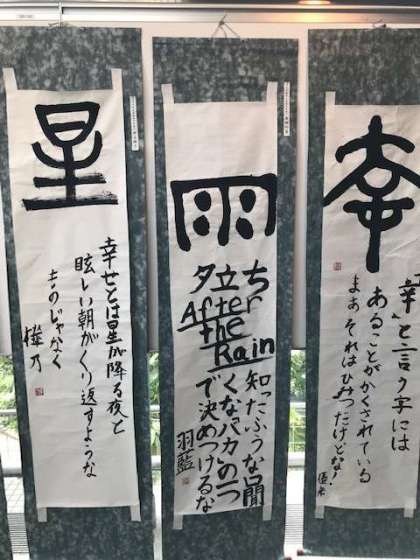 幸
"幸"と言う字には
あることがかくされている
まぁそれはひみつだけどな!
雨
夕立ち
After
the
Rain
知ったふうな口聞
くなバカの一つ
で決めつけるな
羽藍
星
幸せとは星が降る夜と
眩しい朝がくり返すような
ものじゃなく